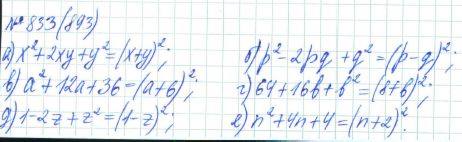 № 833 (893)
а) x²+2xy+y²=(x+y)²; б) p²-2pq+q²=(p-q)²;
в) a²+12a+36=(a+6)²; г) 64+16b+b²=(8+b)²;
д) 1-2z+z²=(1-z)²; е) n²+4n+4=(n+2)².